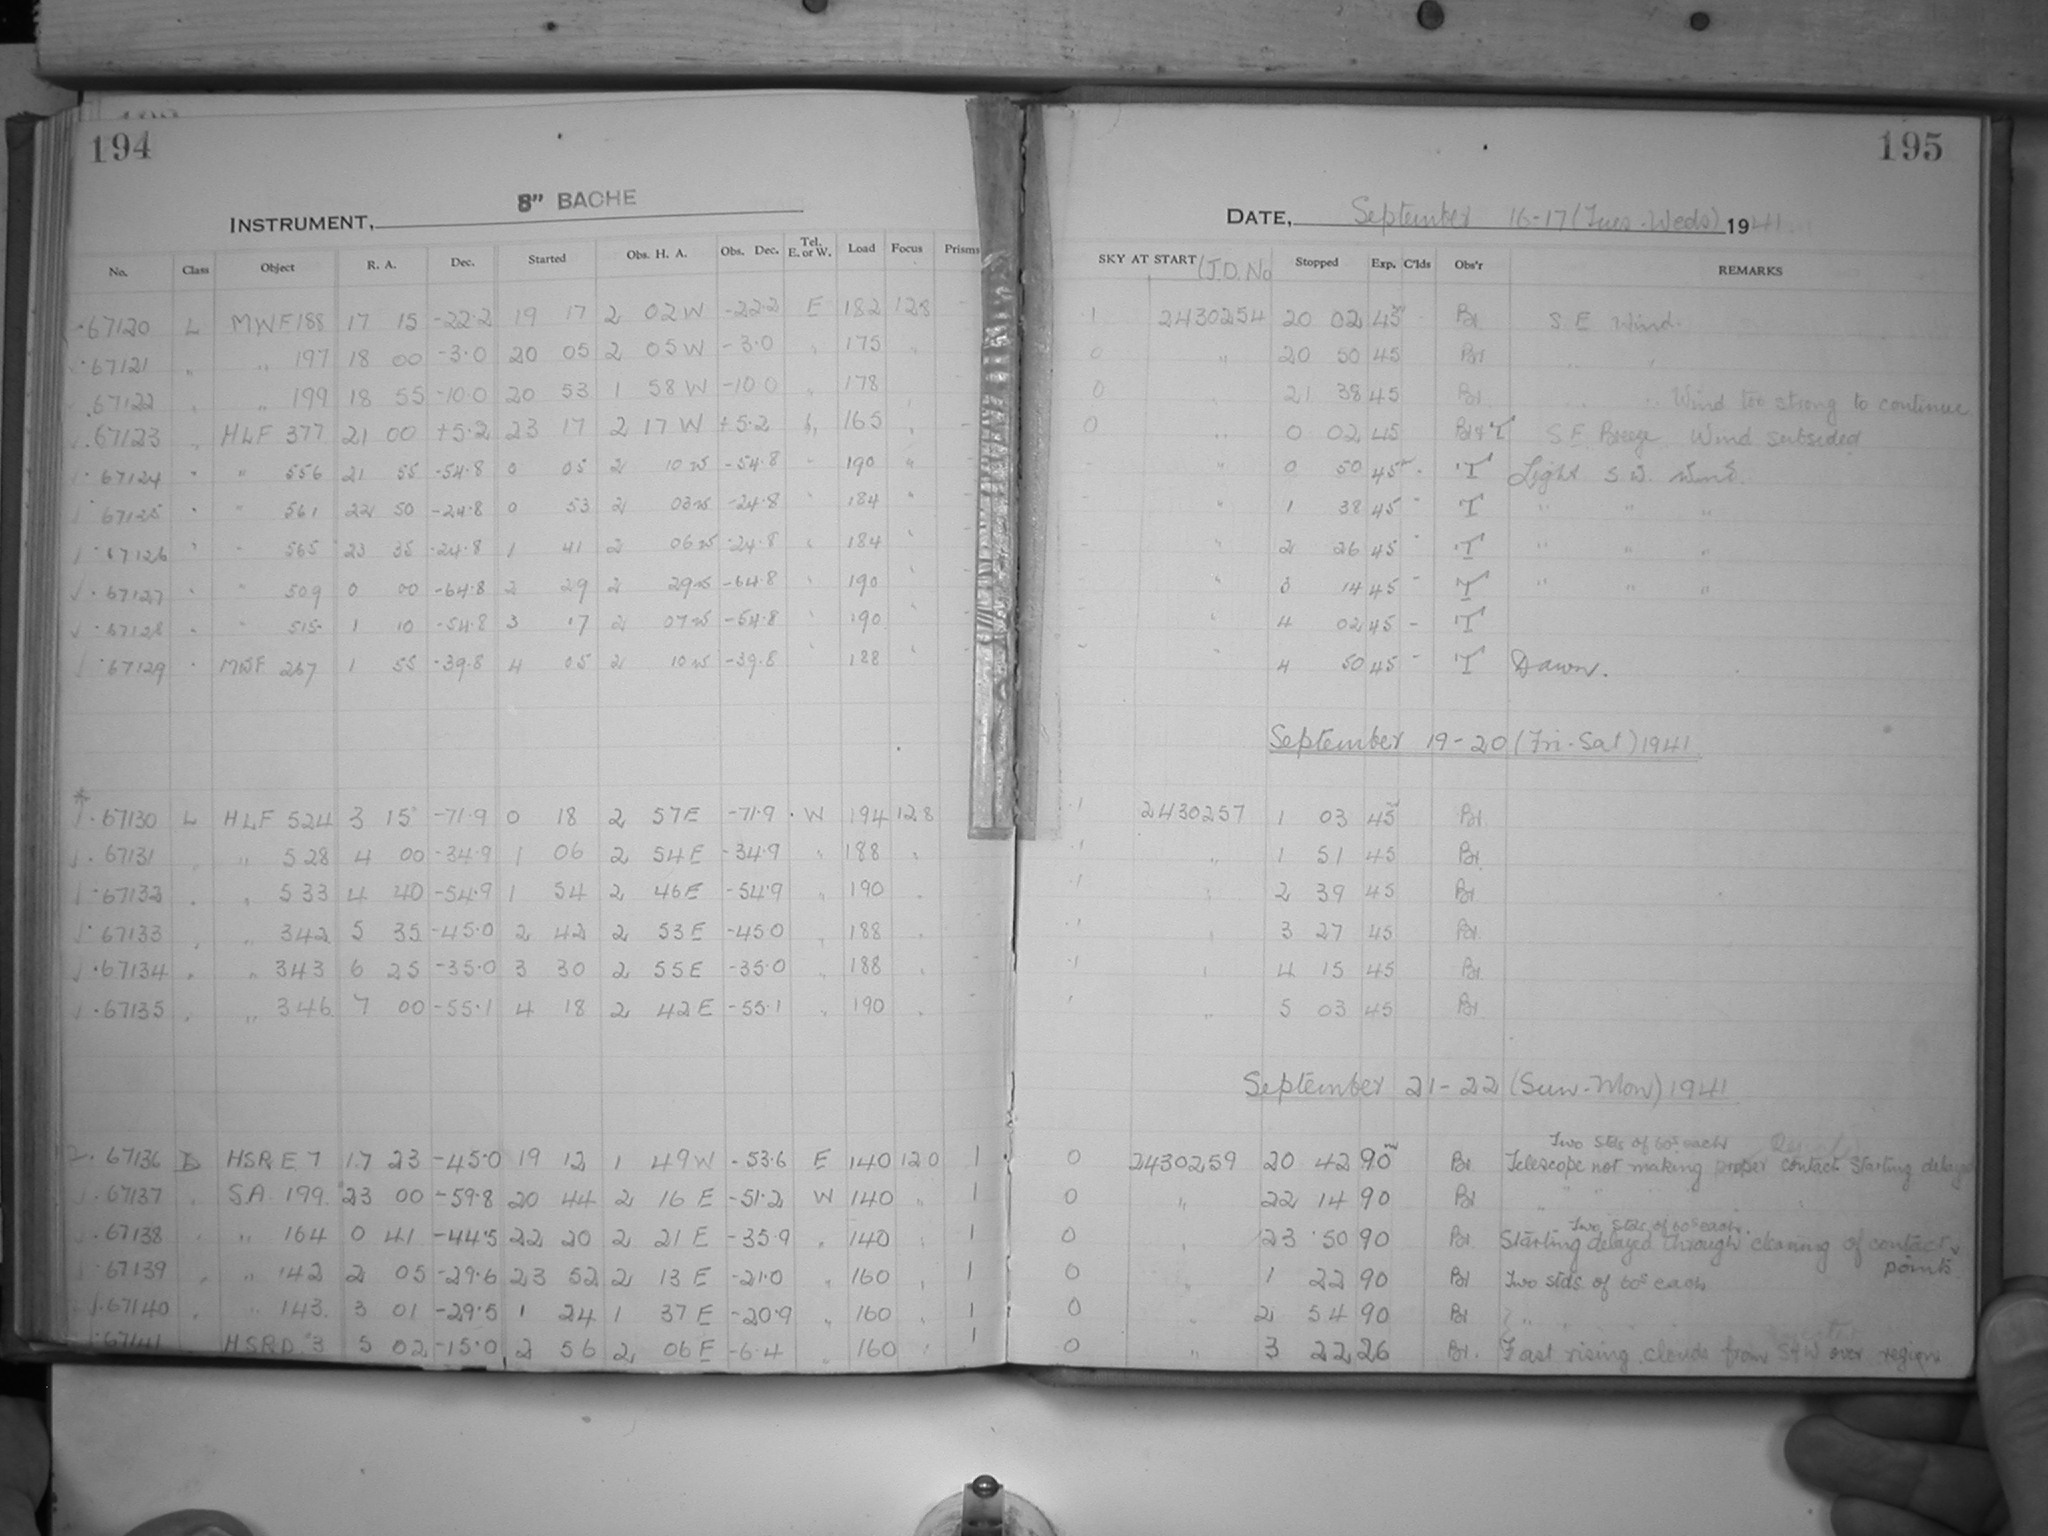 194
INSTRUMENT, 8" BACHE
No. Class Object R. A. Dec. Started Obs. H. A. Obs. Dec. Tel. E. or W. Load Focus Prisms
67120 L MWF 188 17 15 -22.2 19 17 2 02 W -22.2 E 182 128 -
67121 " " 197 18 00 -3.0 20 05 2 05 W -3.0 " 175 "
67122 " " 199 18 55 -10.0 20 53 1 58 W -10.0 " 178 "
67123 " HLF 377 21 00 +5.2 23 17 2 17 W +5.2 165 " -
67124 " " 556 21 55 -54.8 0 05 2 10 W -54.8 " 190 "
67125 " " 561 22 50 -24.8 0 53 2 03 W -24.8 " 184 "
67126 " " 565 23 35 -24.8 1 41 2 06 W -24.8 " 184 "
67127 " " 509 0 00 -64.8 2 29 2 29 W -64.8 " 190 "
67128 " " 515 1 10 -54.8 3 17 2 07 W -54.8 " 190 "
67129 " MWF 267 1 55 -39.8 4 05 2 10 W -39.8 " 188 "
67130 L HLF 524 3 15 -71.9 0 18 2 57 E -71.9 W 194 128
67131 " " 528 4 00 -34.9 1 06 2 54 E -34.9 " 188 "
67132 " " 533 4 40 -54.9 1 54 2 46 E -54.9 190 "
67133 " " 342 5 35 -45.0 2 42 2 53 E -45.0 " 188 "
67134 " " 343 6 25 -35.0 3 30 2 55 E -35.0 " 188 "
67135 " " 346 7 00 -55.1 4 18 2 42 E -55.1 " 190 "
67136 B HSR E 7 17 23 -45.0 19 12 1 49 W -53.6 E 140 120 1
67137 " S.A. 199 23 00 -59.8 20 44 2 16 E -51.2 W 140 " 1
67138 " " 164 0 41 -44.5 22 20 2 21 E -35.9 " 140 " 1
67139 " " 142 2 05 -29.6 23 52 2 13 E -21.0 " 160 " 1
67140 " " 143 3 01 -29.5 1 24 1 37 E -20.9 " 160 " 1
67141 HSR D 3 5 02 -15.0 2 56 2 06 E -6.4 " 160 " 1
195
DATE, September 16-17 (Tues-Weds) 1941
SKY AT START (J.D. No Stopped Exp. C'lds Obs'r REMARKS
1 2430254 20 02 45m Br S E Wind.
0 " 20 50 45 Br " "
0 " 21 38 45 Br " " Wind too strong to continue
0 " 0 02 45 Br & T S E Breeze Wind subsided
" 0 50 45m T Light S.W. Wind.
" 1 38 45 T " " "
" 2 26 45 T " " "
" 3 14 45 T " " "
" 4 02 45 - T
4 50 45 T Dawn.
September 19-20 (Fri-Sat) 1941
1 2430257 1 03 45m Br
1 " 1 51 45 Br
1 " 2 39 45 Br
1 " 3 27 45 Br
1 " 4 15 45 Br
1 " 5 03 45 Br
September 21-22 (Sun-Mon) 1941
Two stds of 60s each
0 2430259 20 42 90m Br Telescope not making proper contact Starting delayed
0 " 22 14 90 Br " " "
Two stds of 60s each
0 " 23 50 90 Br Starting delayed through cleaning of contact
points
0 " 1 22 90 Br Two stds of 60s each
0 " 2 54 90 Br " "
0 " 3 22 26 Br. Fast rising clouds from S & W over region